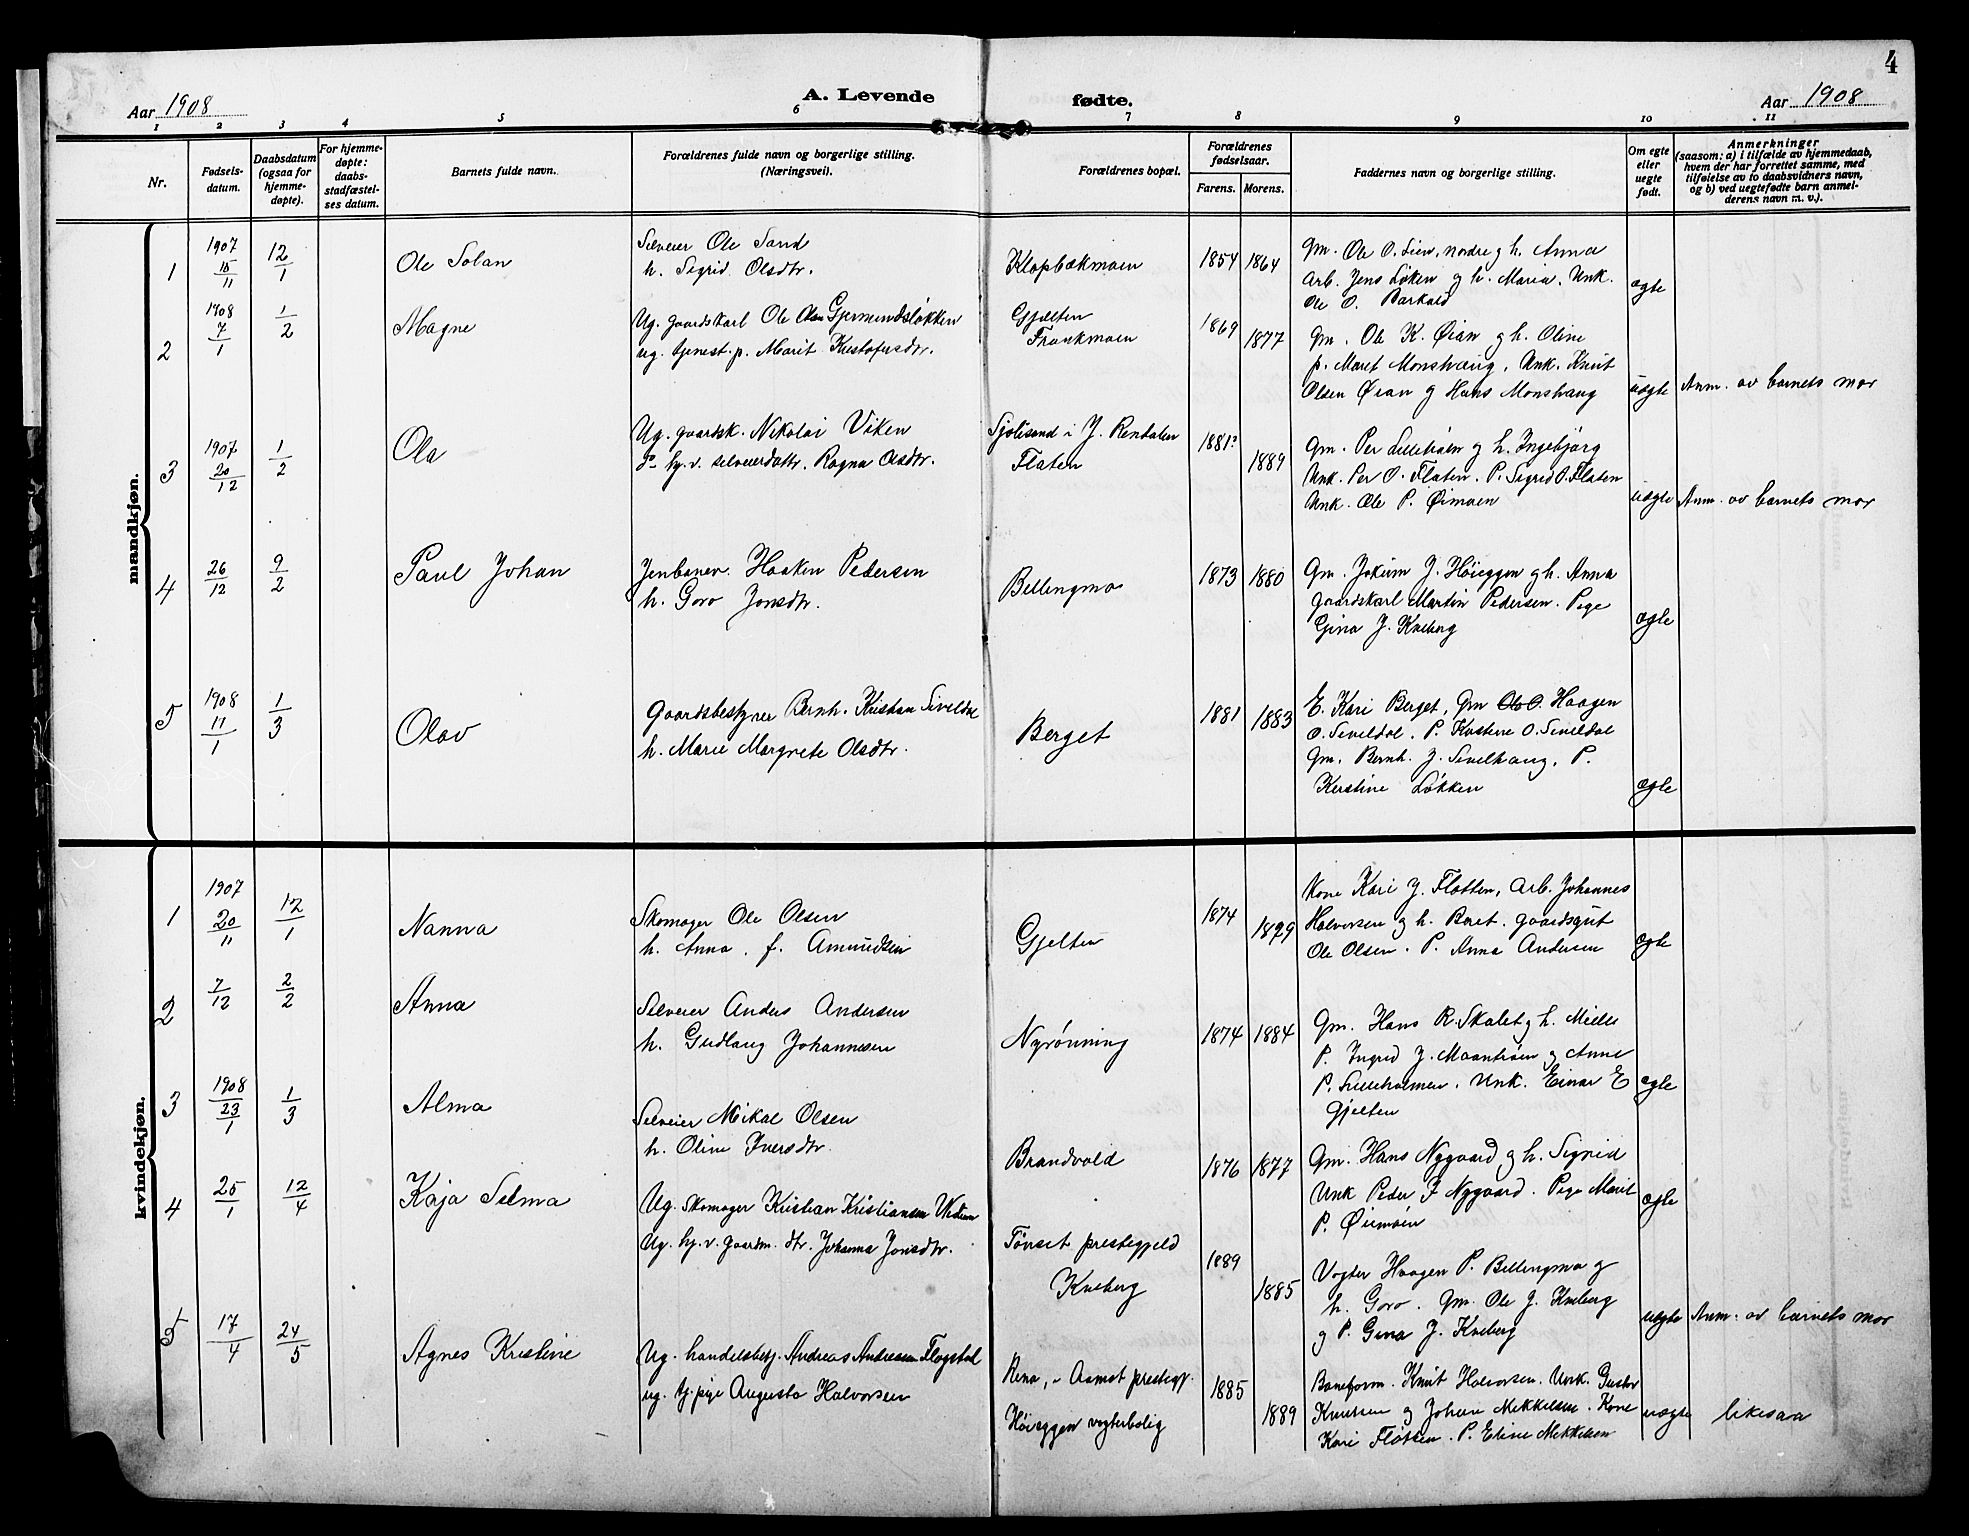 4
Aar 1908
A. Levende fødte.
Aar 1908
1 2 3 4 5 6 7 8 9 10 11
Nr.
Fødsels-
datum.
Daabsdatum
(ogsaa for
hjemme-
døpte).
For hjemme-
døpte:
daabs-
stadfæstel-
ses datum.
Barnets fulde navn.
Forældrenes fulde navn og borgerlige stilling.
(Næringsvei).
Forældrenes bopæl.
Forældrenes
fødselsaar.
Farens. Morens.
Faddernes navn og borgerlige stilling.
Om egte
eller
uegte
født.
Anmerkninger
(saasom: a) i tilfælde av hjemmedaab,
hvem der har forrettet samme, med
tilføielse av to daabsvidners navn,
og b) ved uegtefødte barn anmel-
derens navn m. v.).
mandkjøn.
1
1907
15/11
12/1
Ole Solan
Selveier Ole Sand
h. Sigrid Olsdtr.
Klopbækmoen
1854 1864
Gm. Ole O. Lien, nordre g h. Anna
Arb. Jens Løken g h. Maria. Unk.
Ole O. Barkald
ægte
2
1908
7/1
1/2
Magne
Ug. gaardskarl Ole Olsen Gjermundsløkken
ug. tjenest. p. Marit Kristofersdtr.
Gjelten
Fronkmoen
1869 1877
Gm. Ole K. Øian g h. Oline
p. Maret Monshaug, Unk. Knut
Olsen Øian g Hans Monshaug
uægte
Anm. av barnets mor
3
1907
20/12
1/2
Ola
Ug. gaardsk. Nikolai Viken
do hj. v. selveierdattr. Ragna Olsdtr.
Sjølisand i Y. Rendalen
Flaten
1881? 1889
Gm. Per Lilleløien g h. Ingebjørg
Unk. Per O. Flaten. P. Sigrid O. Flaten
Unk. Ole P. Øimoen
uægte
Anm. av barnets mor
4
26/12
9/2
Paul Johan
Jenbanev. Haaken Pedersen
h. Goro Jonsdtr.
Bellingmo
1873 1880
Gm. Jokum J. Høieggen g h. Anna
gaardskarl Martin Pedersen. Pige
Gina J. Kveberg
ægte
5
1908
11/1
1/3
Olav
Gaardsbestyrer Bernh. Kristian Siveldal
h. Marie Margrete Olsdtr.
Berget
1881 1883
E. Kari Berget, Gm Ole O. Haagen
O. Siveldal. P. Kristine O. Siveldal
Gm. Bernh. J. Sivelhaug. P.
Kerstine Løkken
ægte
kvindekjøn.
1
1907
20/11
12/1
Nanna
Skomager Ole Olsen
h. Anna. f. Amundsen
Gjelten
1874 1879
Kone Kari J. Flotten, Arb. Johannes
Halvorsen g h. Beret. gaardsgut
Ole Olsen. P. Anna Andersen
ægte
2
7/12
2/2
Anna
Selveier Anders Andersen
h. Gudlaug Johannesen
Nyrønning
1874 1884
Gm. Hans R. Skalet g h. Mille
P. Ingrid J. Moantrøen g Anne
P. Lilleholmen. Unk. Einar E
Gjelten
ægte
3
1908
23/1
1/3
Alma
Selveier Mikal Olsen
h. Oline Iversdtr.
Brandvold
1876 1877
Gm. Hans Nygaard g h. Sigrid
Unk Peder P Nygaard. Pige Marit
P. Øiemoen
ægte
4
25/1
12/4
Kaja Selma
Ug. Skomager Kristian Kristiansen
Ug. hj. v. gaardm. dtr. Johanna Jonsdtr.
Tønset prestegjeld
Kveberg
1889 1885
Vogter Haagen P. Bellingmo g
h. Goro. Gm. Ole J. Kveberg
g P. Gina J. Kveberg
uægte
Anm. av barnets mor
5
17/4
24/5
Agnes Kristine
Ug. handelsbetj. Andreas Andresen Flagstad
ug. tj. pige Augusta Halvorsen
Rena, Aamot prestegj.
Høieggen vogterbolig
1885 1889
Baneform. Knut Halvorsen. Unk. Gustav
Knutsen g Johan Mikkelsen. Kone
Kari Fløtten. P. Eline Mikkelsen
uægte
likesaa